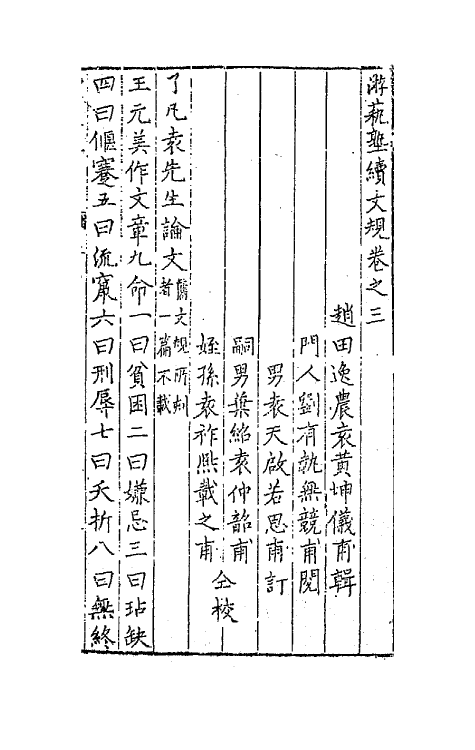 游藝塾續文規卷之三
趙田逸農袁黃坤儀甫輯
門人劉有執無競甫閱
男袁天啟若思甫訂
嗣男葉紹袁仲韶甫
姪孫袁祚熙載之甫
仝校
了凡袁先生論文 舊文規所刻者一篇不載
王元美作文章九命一曰貧困二曰嫌忌三曰玷缺
四曰偃蹇五曰流竄六曰刑辱七曰夭折八曰無終